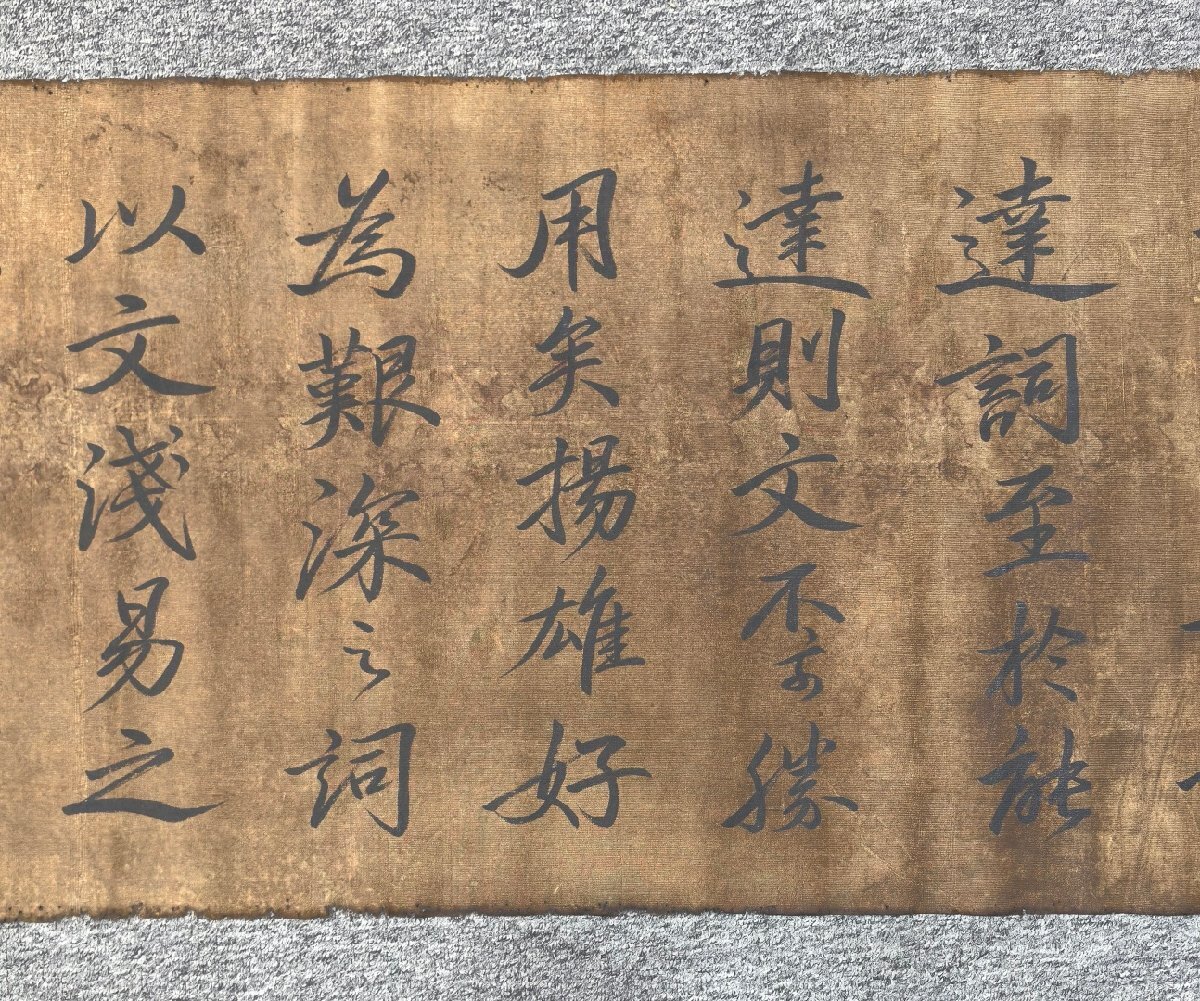 達詞至於能
達則文不可勝
用矣揚雄好
為艱深之詞
以文淺易之